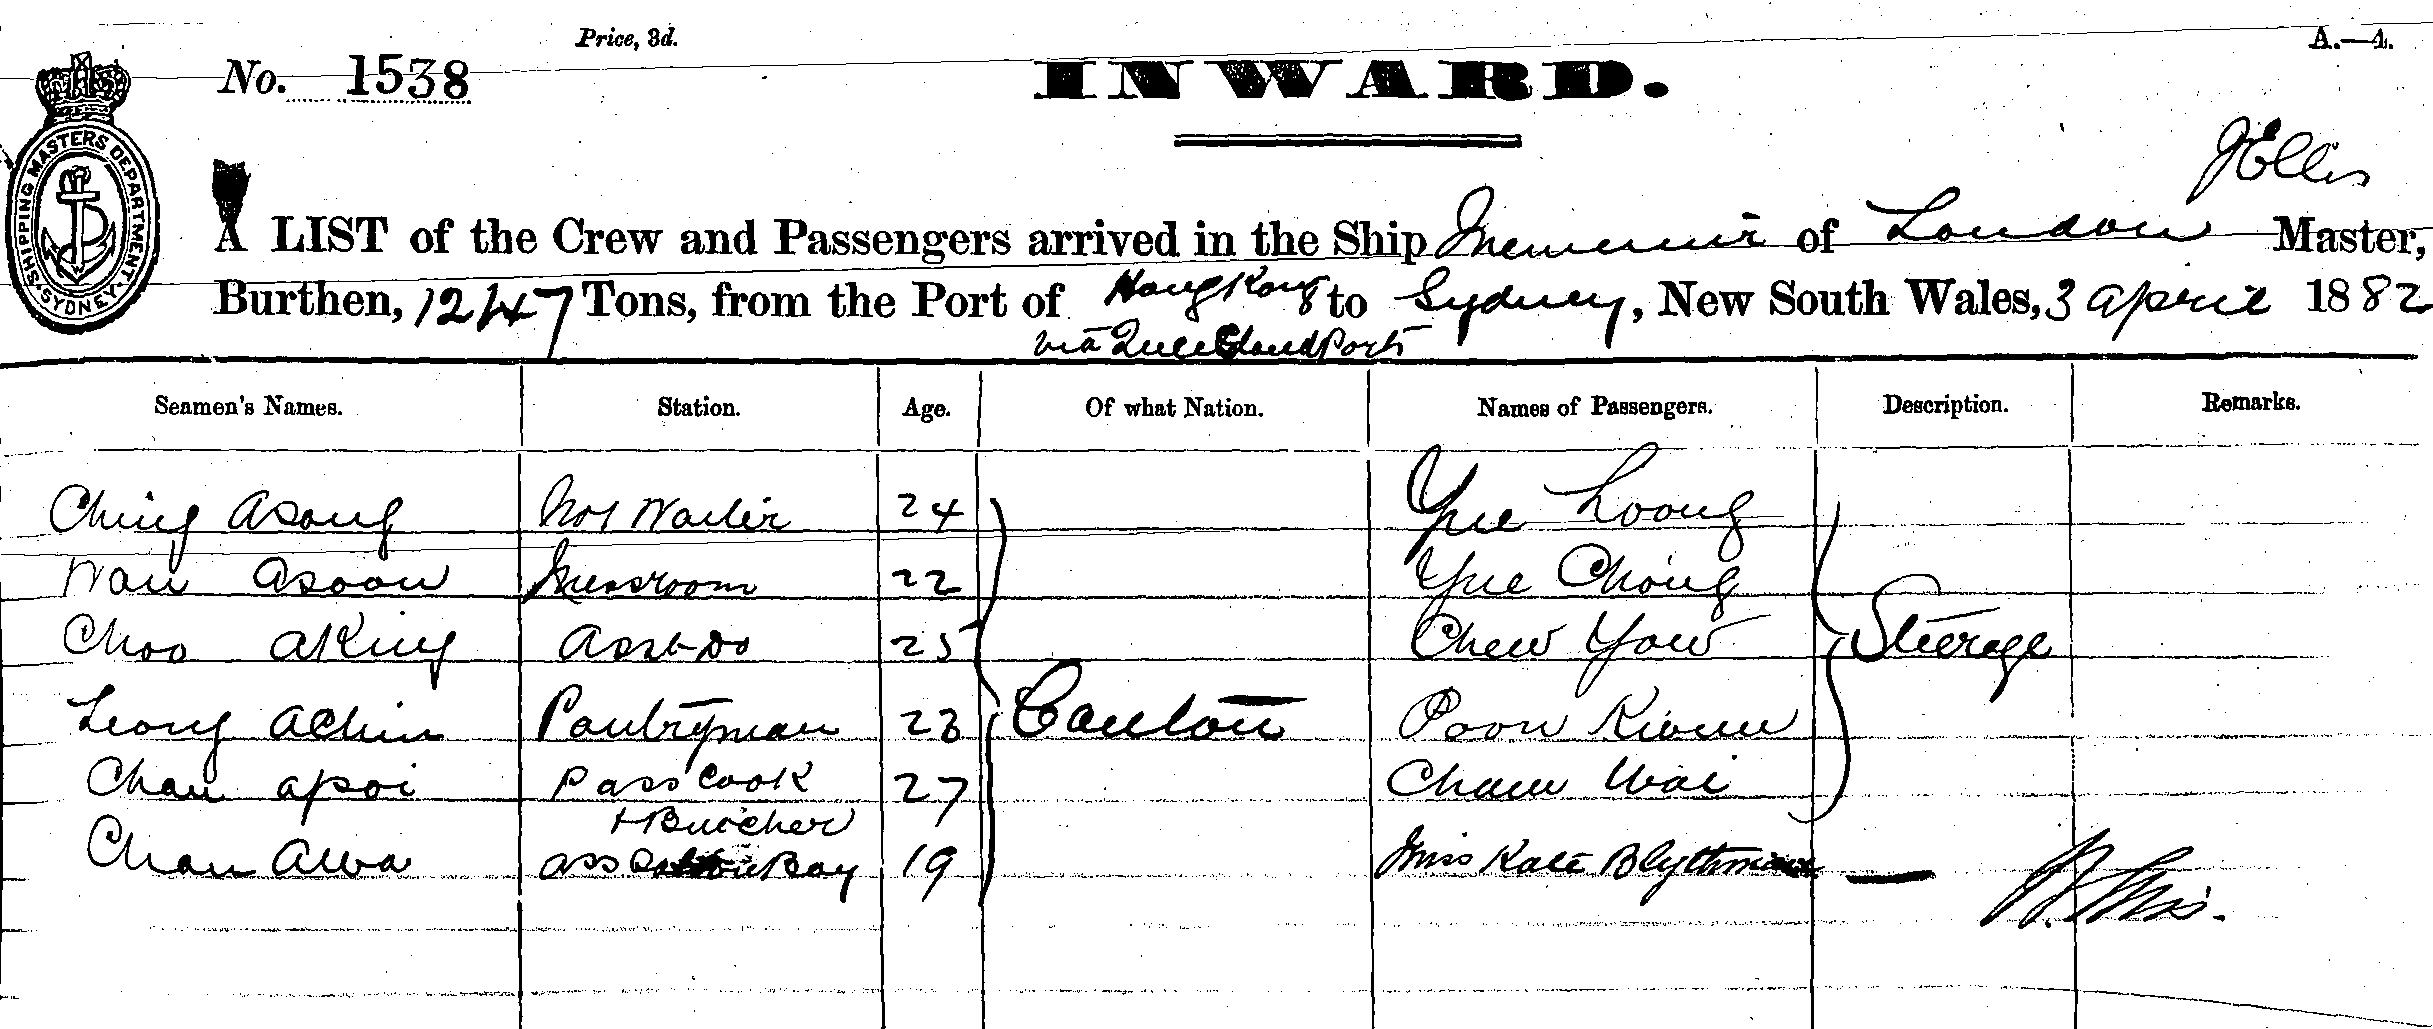 Price, 3d.
A.—4.
No. 1538
INWARD.
SHIPPING MASTERS DEPARTMENT SYDNEY
J Ellis
A LIST of the Crew and Passengers arrived in the Ship Memnuir of London Master,
Burthen, 1247 Tons, from the Port of Hong Kong to Sydney, New South Wales, 3 April 1882
via Queensland Ports
Seamen's Names. Station. Age. Of what Nation. Names of Passengers. Description. Remarks.
Ching Asong Waiter 24 Yue Loong
Wan Asoon Messroom 22 Yue Chong
Choo Aking Asst Do 25 Chew Yow Steerage
Leong Achin Pantryman 23 Canton Poon
Chan Apoi Pass Cook 27 Cham Wai
+ Butcher
Chan Awa Ass Boy 19 Miss Kate —